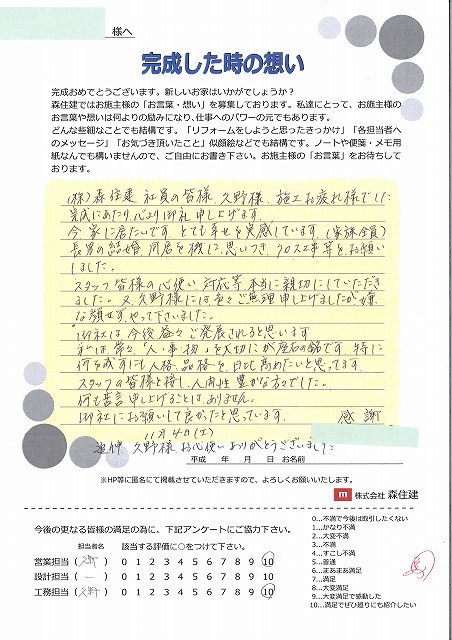 様へ
完成した時の想い
完成おめでとうございます。新しいお家はいかがでしょうか？
森住建ではお施主様の「お言葉・想い」を募集しております。私達にとって、お施主様の
お言葉や想いは何よりの励みになり、仕事へのパワーの元でもあります。
どんな些細なことでも結構です。「リフォームをしようと思ったきっかけ」「各担当者へ
のメッセージ」「お気づき頂いたこと」似顔絵などでも結構です。ノートや便箋・メモ用
紙なんでも構いませんので、ご自由にお書き下さい。お施主様の「お言葉」をお待ちして
おります。
(株)森住建 社員の皆様、久野様、施工お疲れ様でした
完成にあたり、心より御礼申し上げます。
今家に居たいです。とても幸せを実感しています(家族全員)
長男の結婚、同居を機に、思いつき、クロス工事等をお願い
しました。
スタッフ皆様の心使い、対応等、本当に親切にしていただき
ました。又、久野様には多々ご無理申し上げましたが嫌
な顔せず、やって下さいました。
御社は今後益々ご発展されると思います
私は常々「人・事・物」を大切にが座右の銘です 特に
何を成すにも人格、品格を、日比高めたいと思ってます。
スタッフの皆様と接し、人間性豊かな方々でした。
何も苦言申し上げることは、ありません。
御社にお願いして良かったと思っています。 感謝
11月4日(土)
追伸 久野様 お心使いありがとうございました
平成 年 月 日 お名前
※HP等に匿名にて掲載させていただきますので、よろしくお願いいたします。
m 株式会社 森住建
今後の更なる皆様の満足の為に、下記アンケートにご協力下さい。
担当者名 該当する評価に○をつけて下さい。
営業担当（久野） 0 1 2 3 4 5 6 7 8 9 10
設計担当（ー） 0 1 2 3 4 5 6 7 8 9 10
工務担当（久野） 0 1 2 3 4 5 6 7 8 9 10
0…不満で今後は取引したくない
1…かなり不満
2…大変不満
3…不満
4…すこし不満
5…普通
6…まあまあ満足
7…満足
8…大変満足
9…大変満足で感動した
10…満足でぜひ周りにも紹介したい